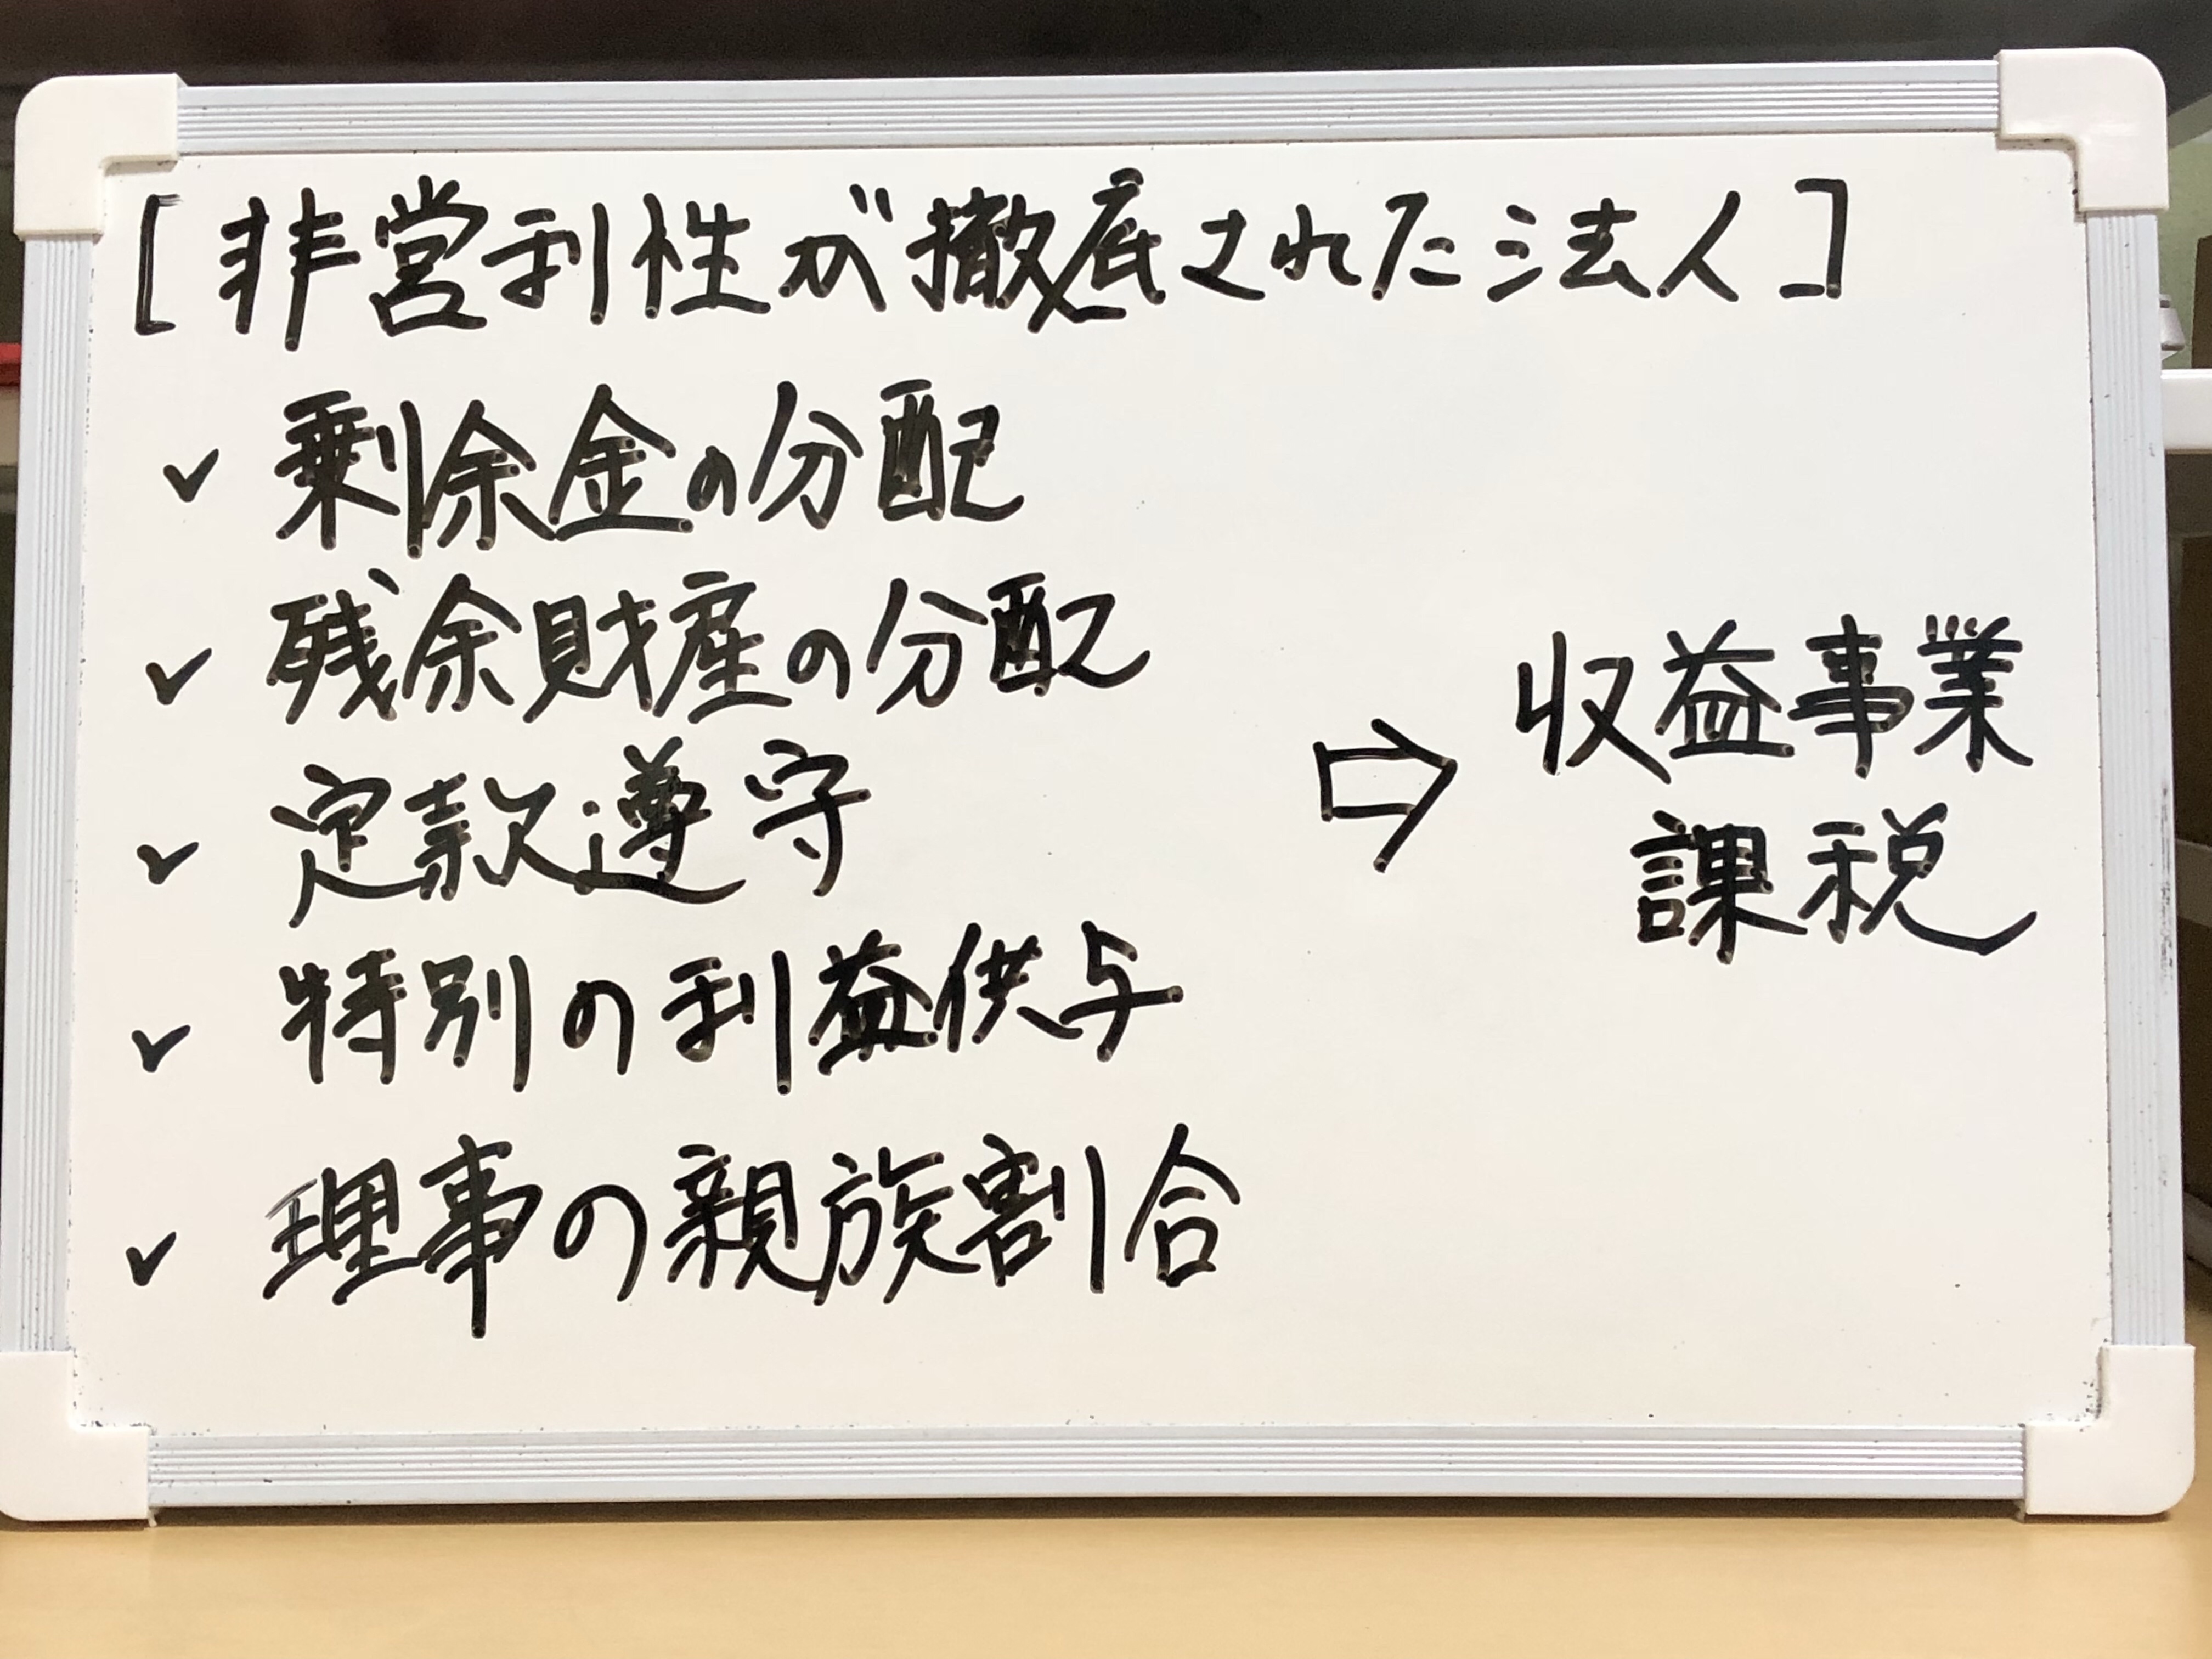 [非営利性が徹底された法人]
✓ 剰余金の分配
✓ 残余財産の分配
✓ 定款遵守
✓ 特別の利益供与
✓ 理事の親族割合
⇨ 収益事業
課税